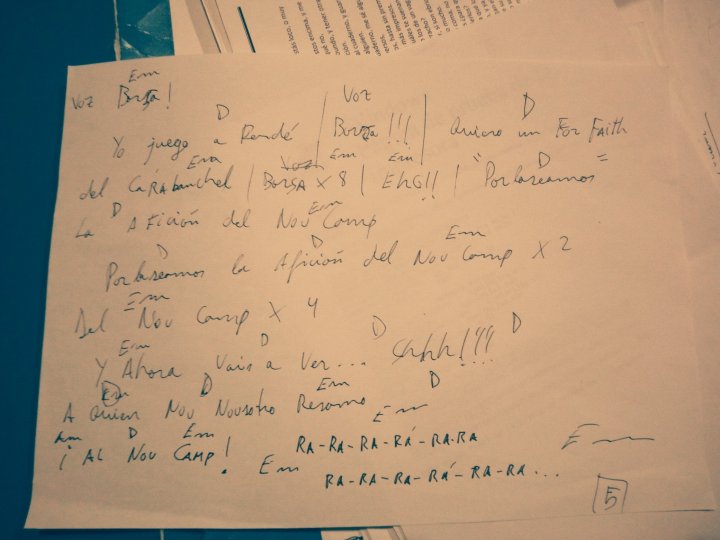 Em
Voz Borsa!
D Voz D
Yo juego a Rendé | Borsa!!! | Quiero un For Faith
Em Voz Em Em D
del Carabanchel | Borsa x 8 | EhG!! | "Porlaseamos"
D Em
La Afición del Nou Camp
D Em
Porlaseamos la Afición del Nou Camp x 2
Em
Del Nou Camp x 4
Em D D D
Y Ahora Vais a Ver... Shhh!!!!
Em D Em D
A Quien Nou Nousotro Resamo
Em D Em Em
¡Al Nou Camp! Ra-Ra-Ra-Rá-Ra-Ra Em
Em Ra-Ra-Ra-Rá-Ra-Ra...
5